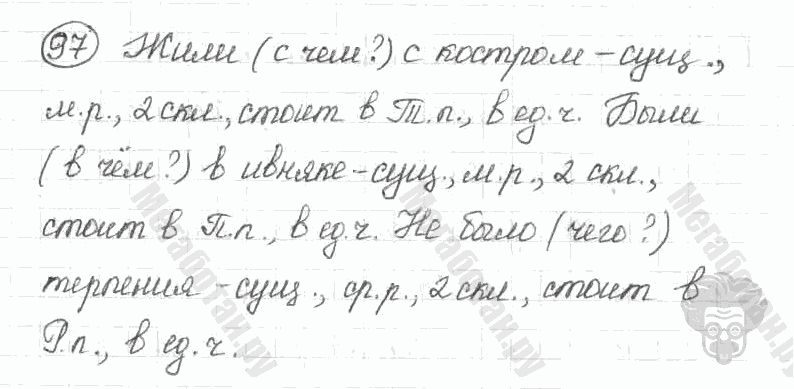 97 Жили (с чем?) с костром - сущ.,
м.р., 2 скл., стоит в Т.п., в ед.ч. Были
(в чём?) в ивняке - сущ., м.р., 2 скл.,
стоит в П.п., в ед.ч. Не было (чего?)
терпения - сущ., ср.р., 2 скл., стоит в
Р.п., в ед.ч.
Мегаботан.ру
Мегаботан.ру
Мегаботан.ру